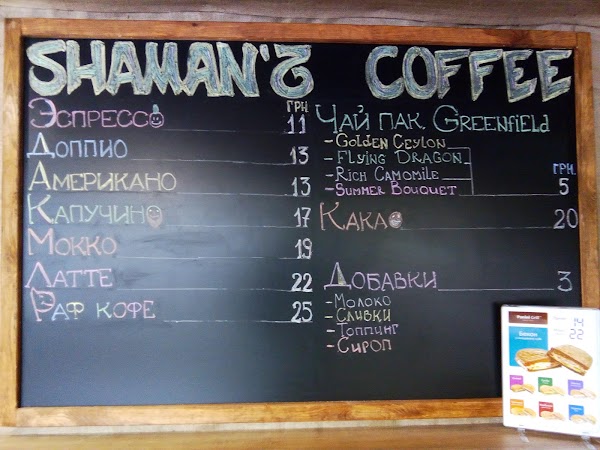 SHAMAN'S COFFEE
ГРН
Эспрессо 11
Доппио 13
Американо 13
Капучино 17
Мокко 19
Латте 22
Раф кофе 25
Чай пак. Greenfield
- Golden Ceylon
- Flying Dragon
- Rich Camomile
- Summer Bouquet
ГРН.
5
Какао 20
Добавки 3
- Молоко
- Сливки
- Топпинг
- Сироп
14
22